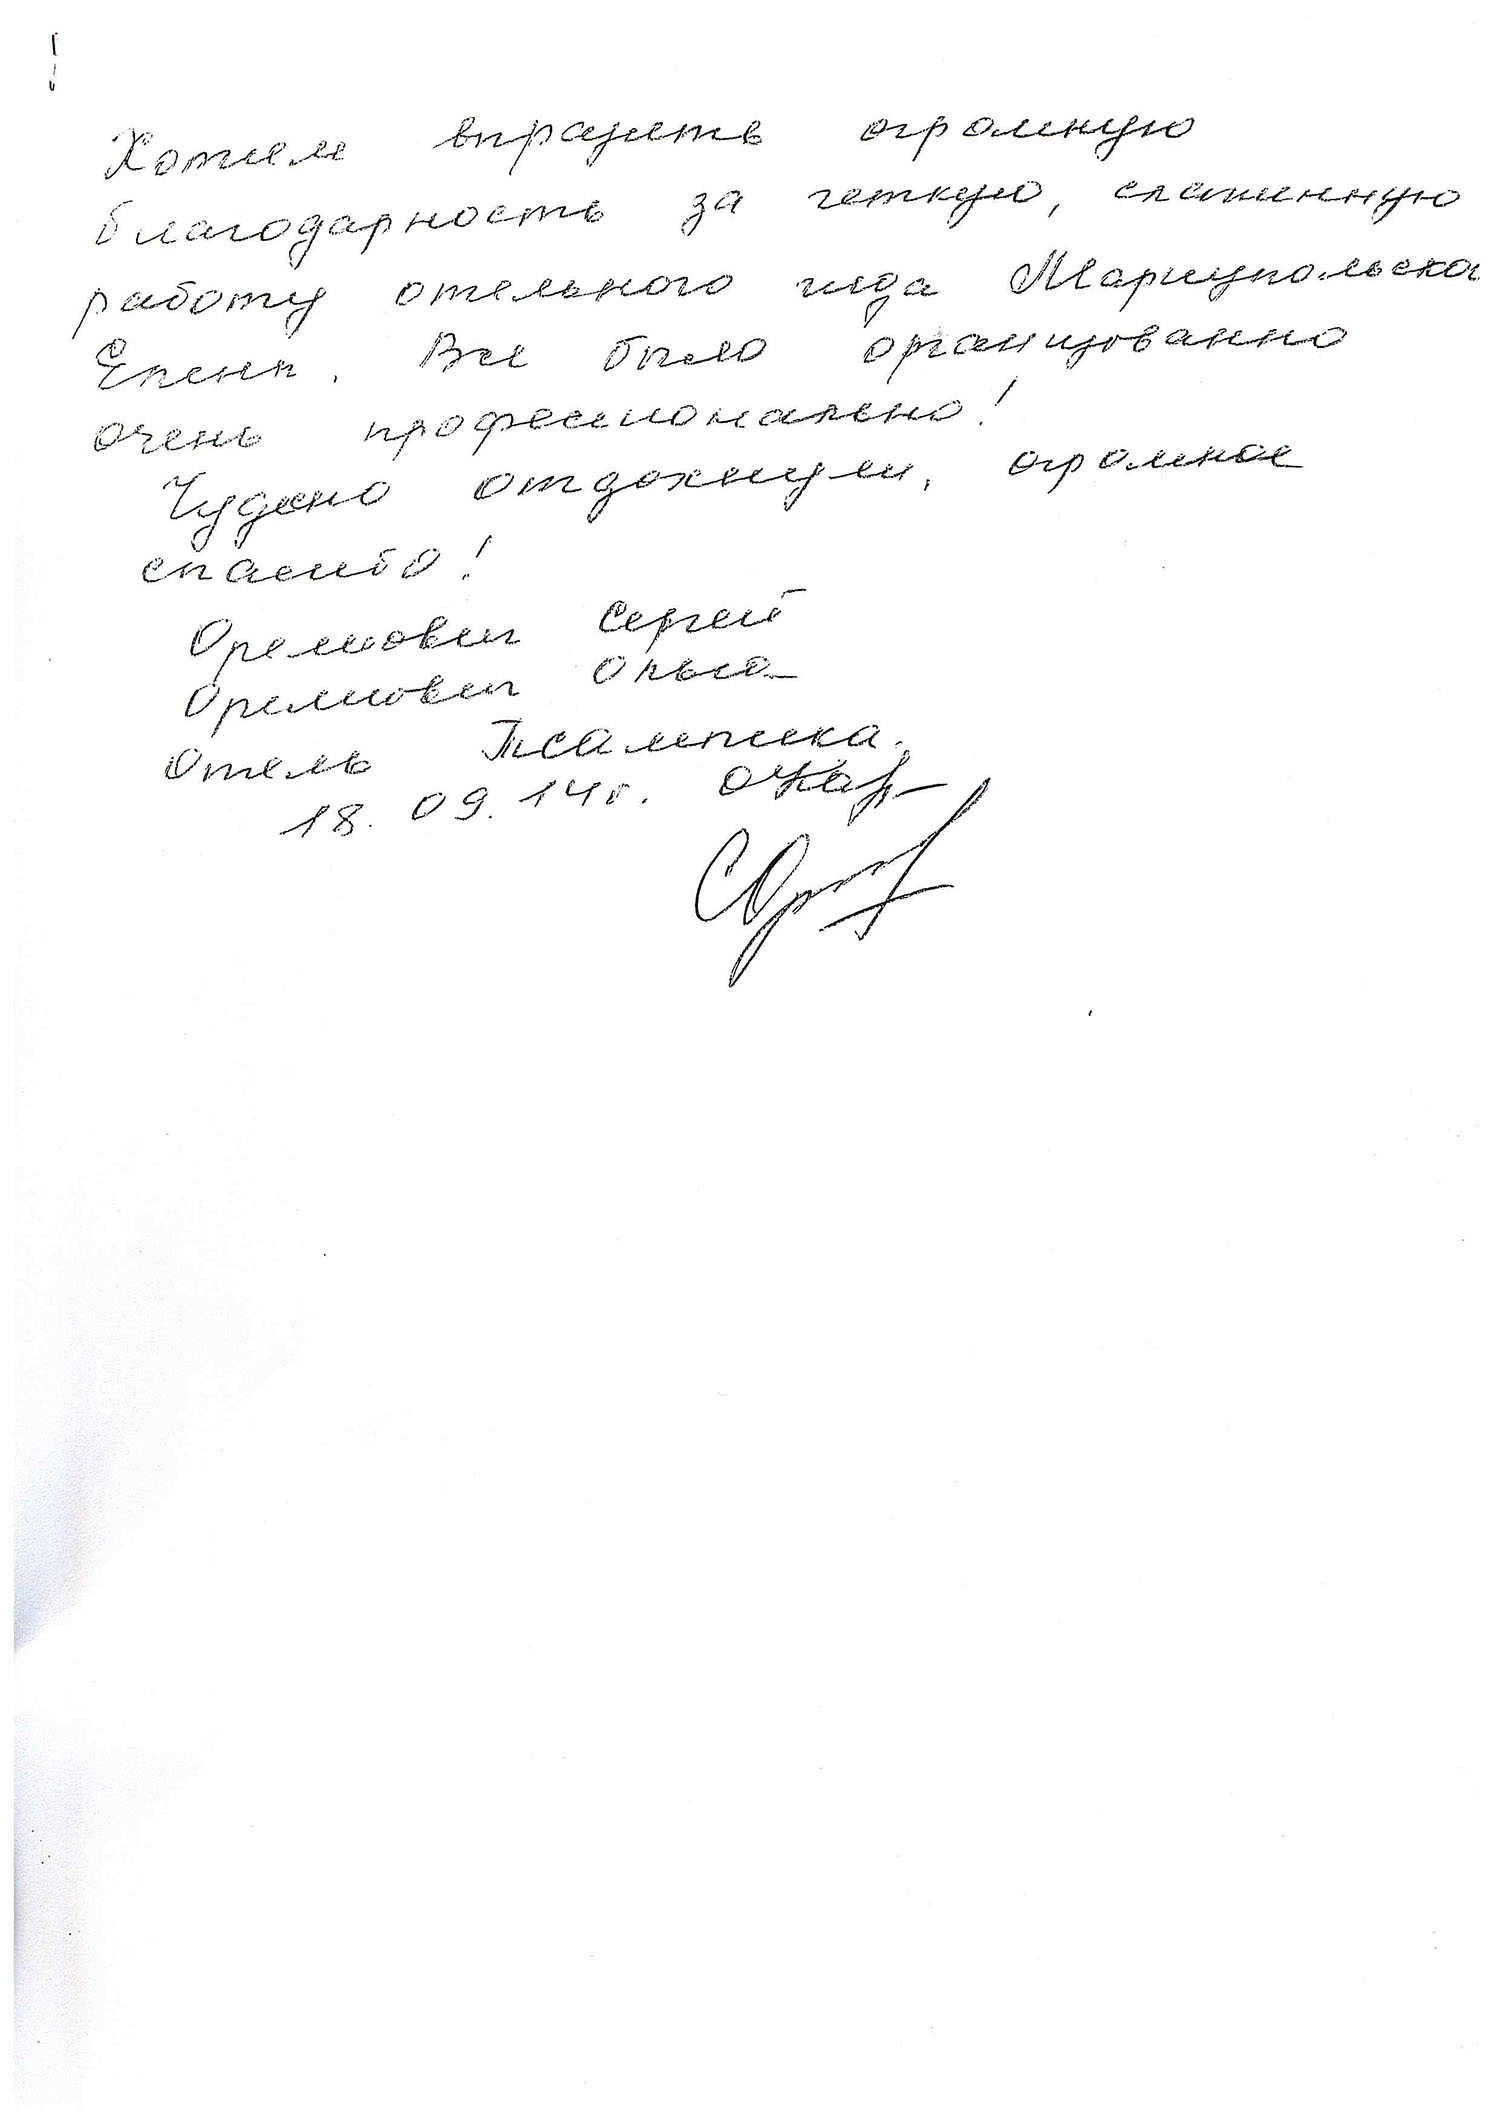 Хотим выразить огромную
благодарность за четкую, слаженную
работу отельного гида Мариупольска
Елены. Все было организованно
очень профессионально!
Чудесно отдохнули, огромное
спасибо!
Сергей
Ольга
Отель Псамтика.
18.09.14г.